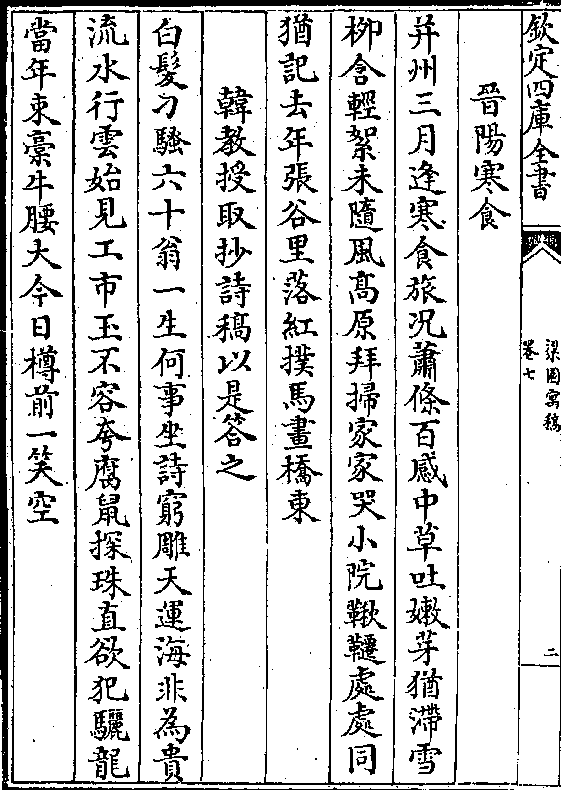 欽定四庫全書
梁園寓稿
卷七
二
晉陽寒食
并州三月逢寒食旅况蕭條百感中草吐嫩芽猶滯雪
柳含輕絮未隨風髙原拜掃家家哭小院鞦韆處處同
猶記去年張谷里落紅撲馬畫橋東
韓教授取抄詩稿以是答之
白髮刁騷六十翁一生何事坐詩窮雕天運海非為貴
流水行雲始見工市玉不容夸腐鼠探珠直欲犯驪龍
當年束藁牛腰大今日樽前一笑空